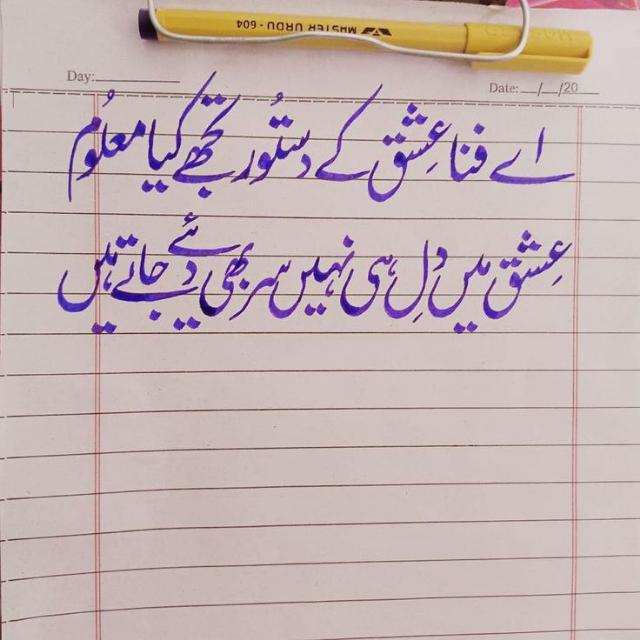 MASTER URDU - 604
Day:
Date: __/__/20__
اے فنا عِشق کے دستُور تجھے کیا معلُوم
عِشق میں دِل ہی نہیں سر بھی دئیے جاتے ہیں